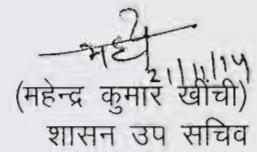 21/11/14
(महेन्द्र कुमार खींची)
शासन उप सचिव